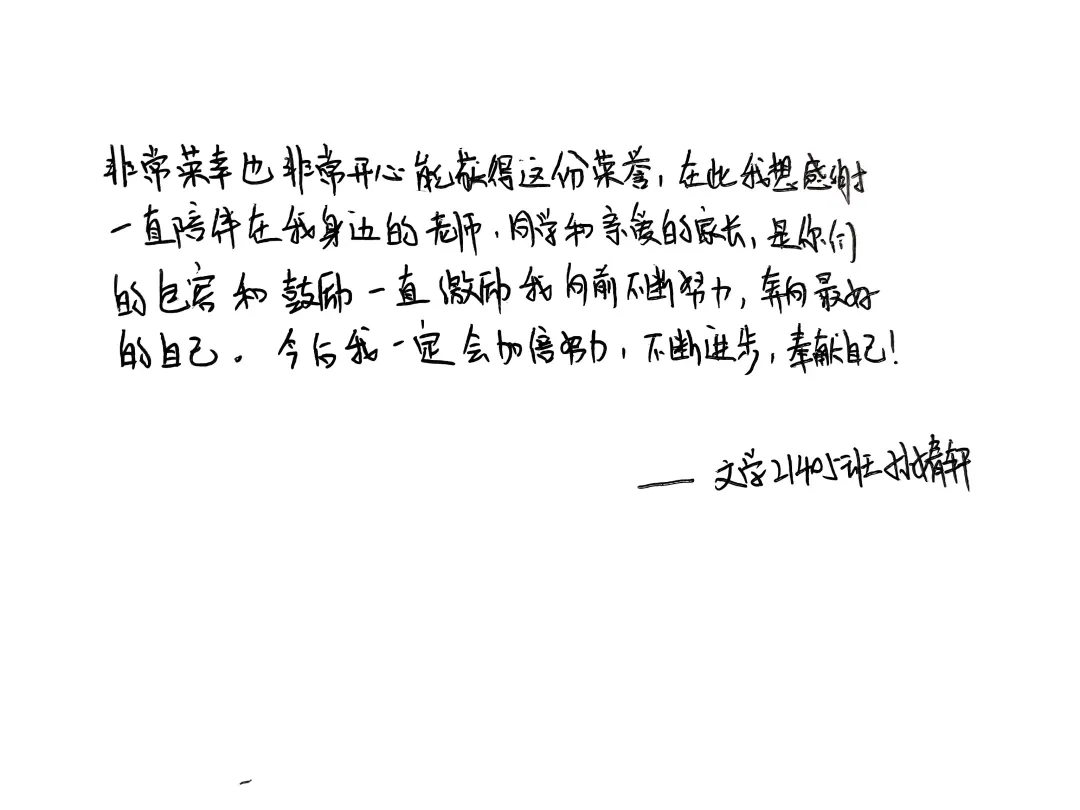 非常荣幸也非常开心能获得这份荣誉，在此我想感谢
一直陪伴在我身边的老师、同学和亲爱的家长，是你们
的包容和鼓励一直激励我向前不断努力，奔向最好
的自己。今后我一定会加倍努力，不断进步，奉献自己！
——文学21405班孙婧轩